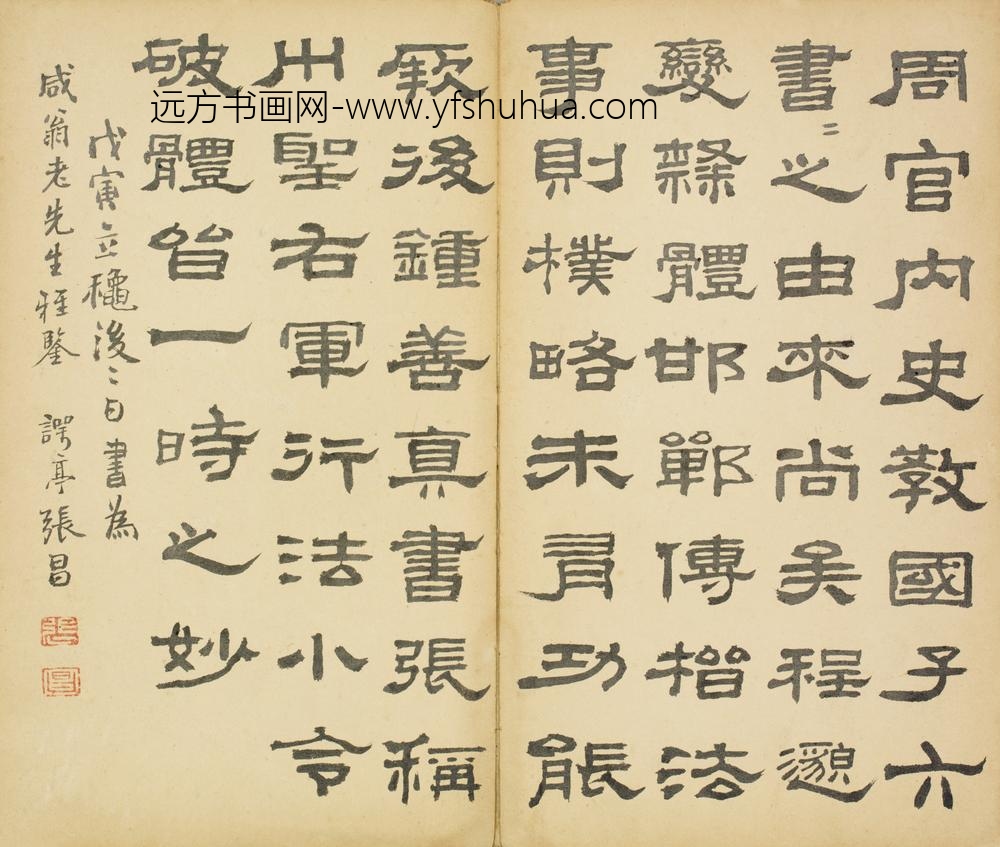 周官內史教國子六
書〻之由來尚矣程邈
變隸體邯鄲傳楷法
事則樸略未有功能
厥後鍾善真書張稱
艸聖右軍行法小令
破體皆一時之妙
戊寅立穐後二日書為
咸翁老先生雅鑒 亭張昌
远方书画网-www.yfshuhua.com